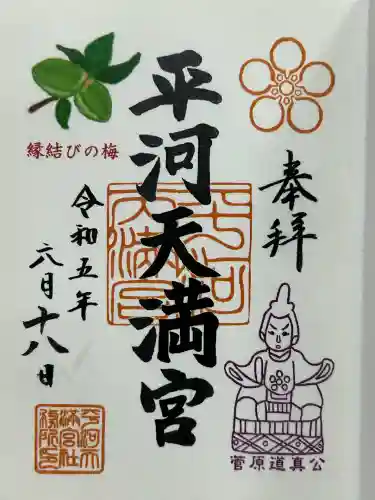 奉拝
菅原道真公
平河天満宮
平河天満宮
縁結びの梅
令和五年
六月十八日
平河天満宮社務所印